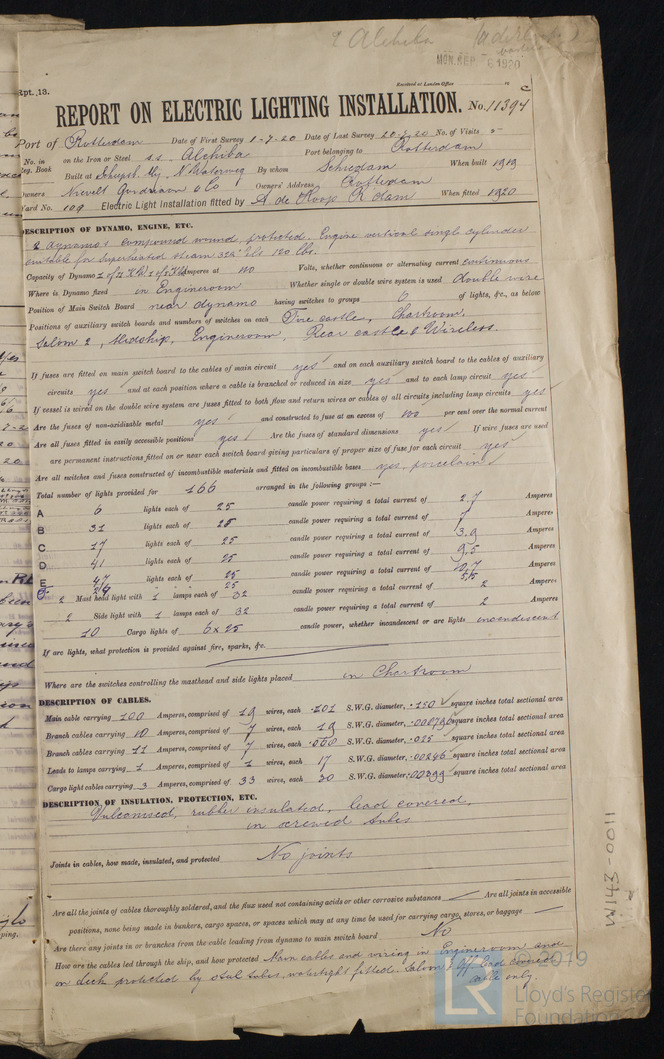 Alchiba
MON. SEP. 6 1920
Rpt. 13.
Received at London Office
REPORT ON ELECTRIC LIGHTING INSTALLATION. No. 11394
Port of Rotterdam Date of First Survey 1-7-20 Date of Last Survey 20-7-20 No. of Visits
No. in Reg. Book on the Iron or Steel s.s. Alchiba Port belonging to Rotterdam
Built at Schiedam By whom N. Waterweg When built 1919
Owners Nievelt Goudriaan & Co Owners' Address Rotterdam
Yard No. 109 Electric Light Installation fitted by A. de Hoop R'dam When fitted 1920
DESCRIPTION OF DYNAMO, ENGINE, ETC.
2 dynamos compound wound, protected. Engine vertical single cylinder
suitable for superheated steam 120 lbs.
Capacity of Dynamo Amperes at 110 Volts, whether continuous or alternating current continuous
Where is Dynamo fixed in Engineroom Whether single or double wire system is used double wire
Position of Main Switch Board near dynamo having switches to groups 6 of lights, &c., as below
Positions of auxiliary switch boards and numbers of switches on each Fore castle, Chartroom,
Saloon 2, Midship, Engineroom, Rear castle & Wireless.
If fuses are fitted on main switch board to the cables of main circuit yes and on each auxiliary switch board to the cables of auxiliary
circuits yes and at each position where a cable is branched or reduced in size yes and to each lamp circuit yes
If vessel is wired on the double wire system are fuses fitted to both flow and return wires or cables of all circuits including lamp circuits yes
Are the fuses of non-oxidizable metal yes and constructed to fuse at an excess of 100 per cent over the normal current
Are all fuses fitted in easily accessible positions yes Are the fuses of standard dimensions yes If wire fuses are used
are permanent instructions fitted on or near each switch board giving particulars of proper size of fuse for each circuit yes
Are all switches and fuses constructed of incombustible materials and fitted on incombustible bases yes, porcelain
Total number of lights provided for 166 arranged in the following groups :—
A 6 lights each of 25 candle power requiring a total current of 2.7 Amperes
B 31 lights each of 25 candle power requiring a total current of 7 Amperes
C 17 lights each of 25 candle power requiring a total current of 3.9 Amperes
D 41 lights each of 25 candle power requiring a total current of 9.5 Amperes
E 47 lights each of 25 candle power requiring a total current of 10.7 Amperes
24 25 5.5
2 Mast head light with 1 lamps each of 32 candle power requiring a total current of 2 Amperes
2 Side light with 1 lamps each of 32 candle power requiring a total current of 2 Amperes
10 Cargo lights of 6 x 25 candle power, whether incandescent or arc lights incandescent
If arc lights, what protection is provided against fire, sparks, &c.
Where are the switches controlling the masthead and side lights placed in Chartroom
DESCRIPTION OF CABLES.
Main cable carrying 100 Amperes, comprised of 19 wires, each .101 S.W.G. diameter, .150 square inches total sectional area
Branch cables carrying 10 Amperes, comprised of 7 wires, each 19 S.W.G. diameter, square inches total sectional area
Branch cables carrying 11 Amperes, comprised of 7 wires, each S.W.G. diameter, .025 square inches total sectional area
Leads to lamps carrying 1 Amperes, comprised of 1 wires, each 17 S.W.G. diameter, .00246 square inches total sectional area
Cargo light cables carrying 3 Amperes, comprised of 33 wires, each 30 S.W.G. diameter, .00399 square inches total sectional area
DESCRIPTION OF INSULATION, PROTECTION, ETC.
Vulcanised, rubber insulated, lead covered,
in screwed tubes
Joints in cables, how made, insulated, and protected No joints
Are all the joints of cables thoroughly soldered, and the flux used not containing acids or other corrosive substances — Are all joints in accessible
positions, none being made in bunkers, cargo spaces, or spaces which may at any time be used for carrying cargo, stores, or baggage —
Are there any joints in or branches from the cable leading from dynamo to main switch board No
How are the cables led through the ship, and how protected Main cables and wiring in Engineroom and
on deck protected by steel tubes, watertight fitted. Saloon lead covered
cable only
W143-0011
© 2019
LR
Lloyd's Register
Foundation